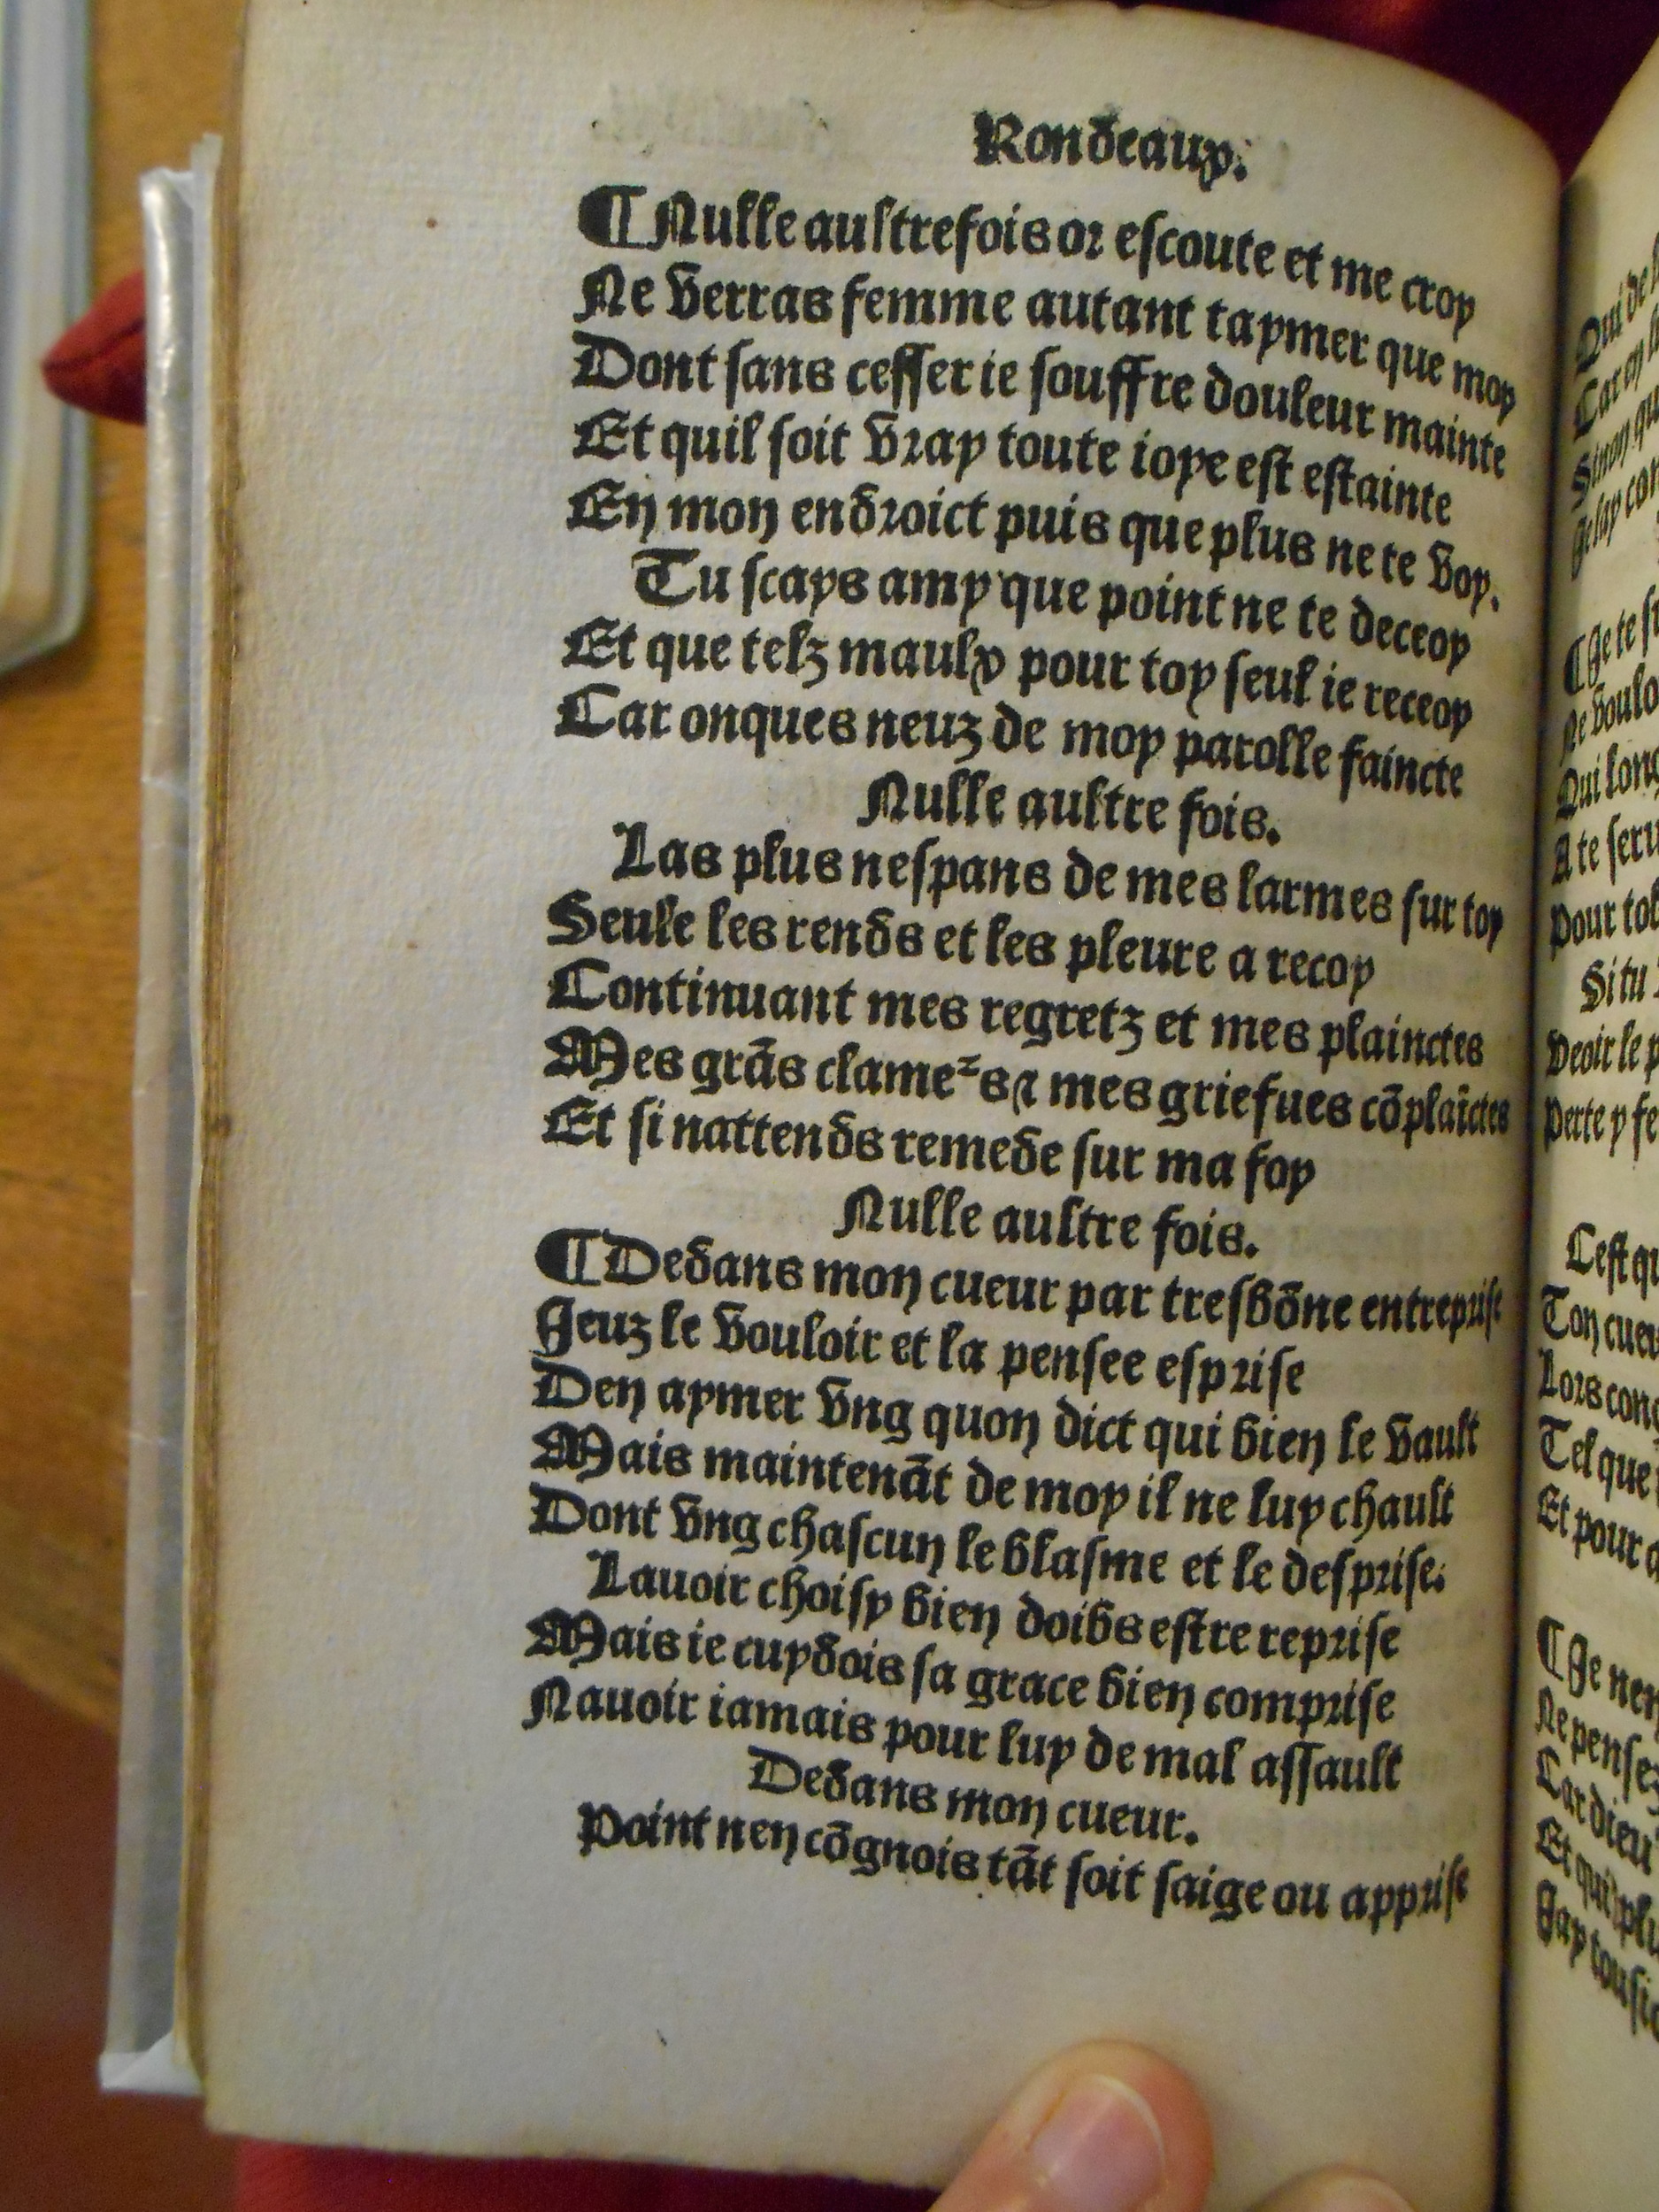 Rondeaux.
¶ Nulle aultrefois or escoute et me croy
Ne verras femme autant taymer que moy
Dont sans cesser ie souffre douleur mainte
Et quil soit vray toute ioye est estainte
En mon endroict puis que plus ne te voy.
Tu scays amy que point ne te deceoy
Et que telz maulx pour toy seul ie receoy
Car onques neuz de moy parolle faincte
Nulle aultre fois.
Las plus nespans de mes larmes sur toy
Seule les rends et les pleure a recoy
Continuant mes regretz et mes plainctes
Mes grãs clameᷣs ⁊ mes griefues cõplaĩctes
Et si nattends remede sur ma foy
Nulle aultre fois.
¶ Dedans mon cueur par tresbõne entreprise
Jeuz le vouloir et la pensee esprise
Den aymer vng quon dict qui bien le vault
Mais maintenãt de moy il ne luy chault
Dont vng chascun le blasme et le desprise.
Lauoir choisy bien doibs estre reprise
Mais ie cuydois sa grace bien comprise
Nauoir iamais pour luy de mal assault
Dedans mon cueur.
Point nen cõgnois tãt soit saige ou apprise
Qui de
Car
Je te
Ne
Qui long
A te seru
Pour
Si tu
Veoir le
Perte y
Cest
Ton
Lors
Tel que
Et pour
¶ Je
Ne pensez
Car dieu
Et
Jay